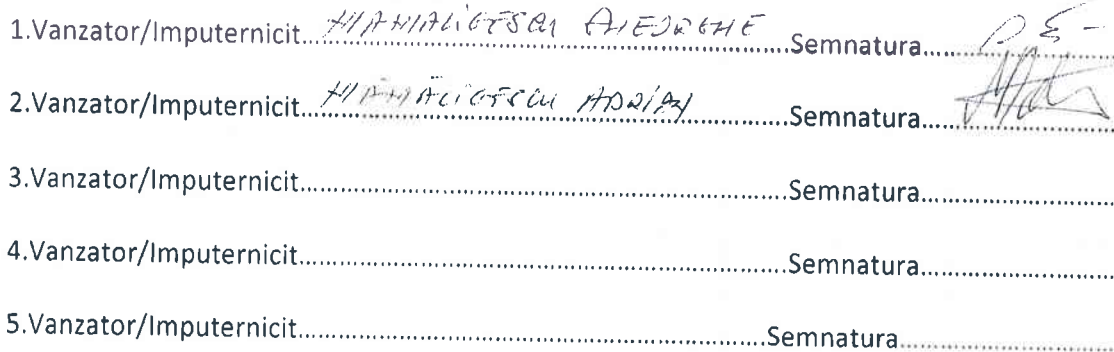 1.Vanzator/Imputernicit.......................Semnatura..........
2.Vanzator/Imputernicit... ADRIAN ...Semnatura..........
3.Vanzator/Imputernicit.......................Semnatura..........
4.Vanzator/Imputernicit.......................Semnatura..........
5.Vanzator/Imputernicit.......................Semnatura..........